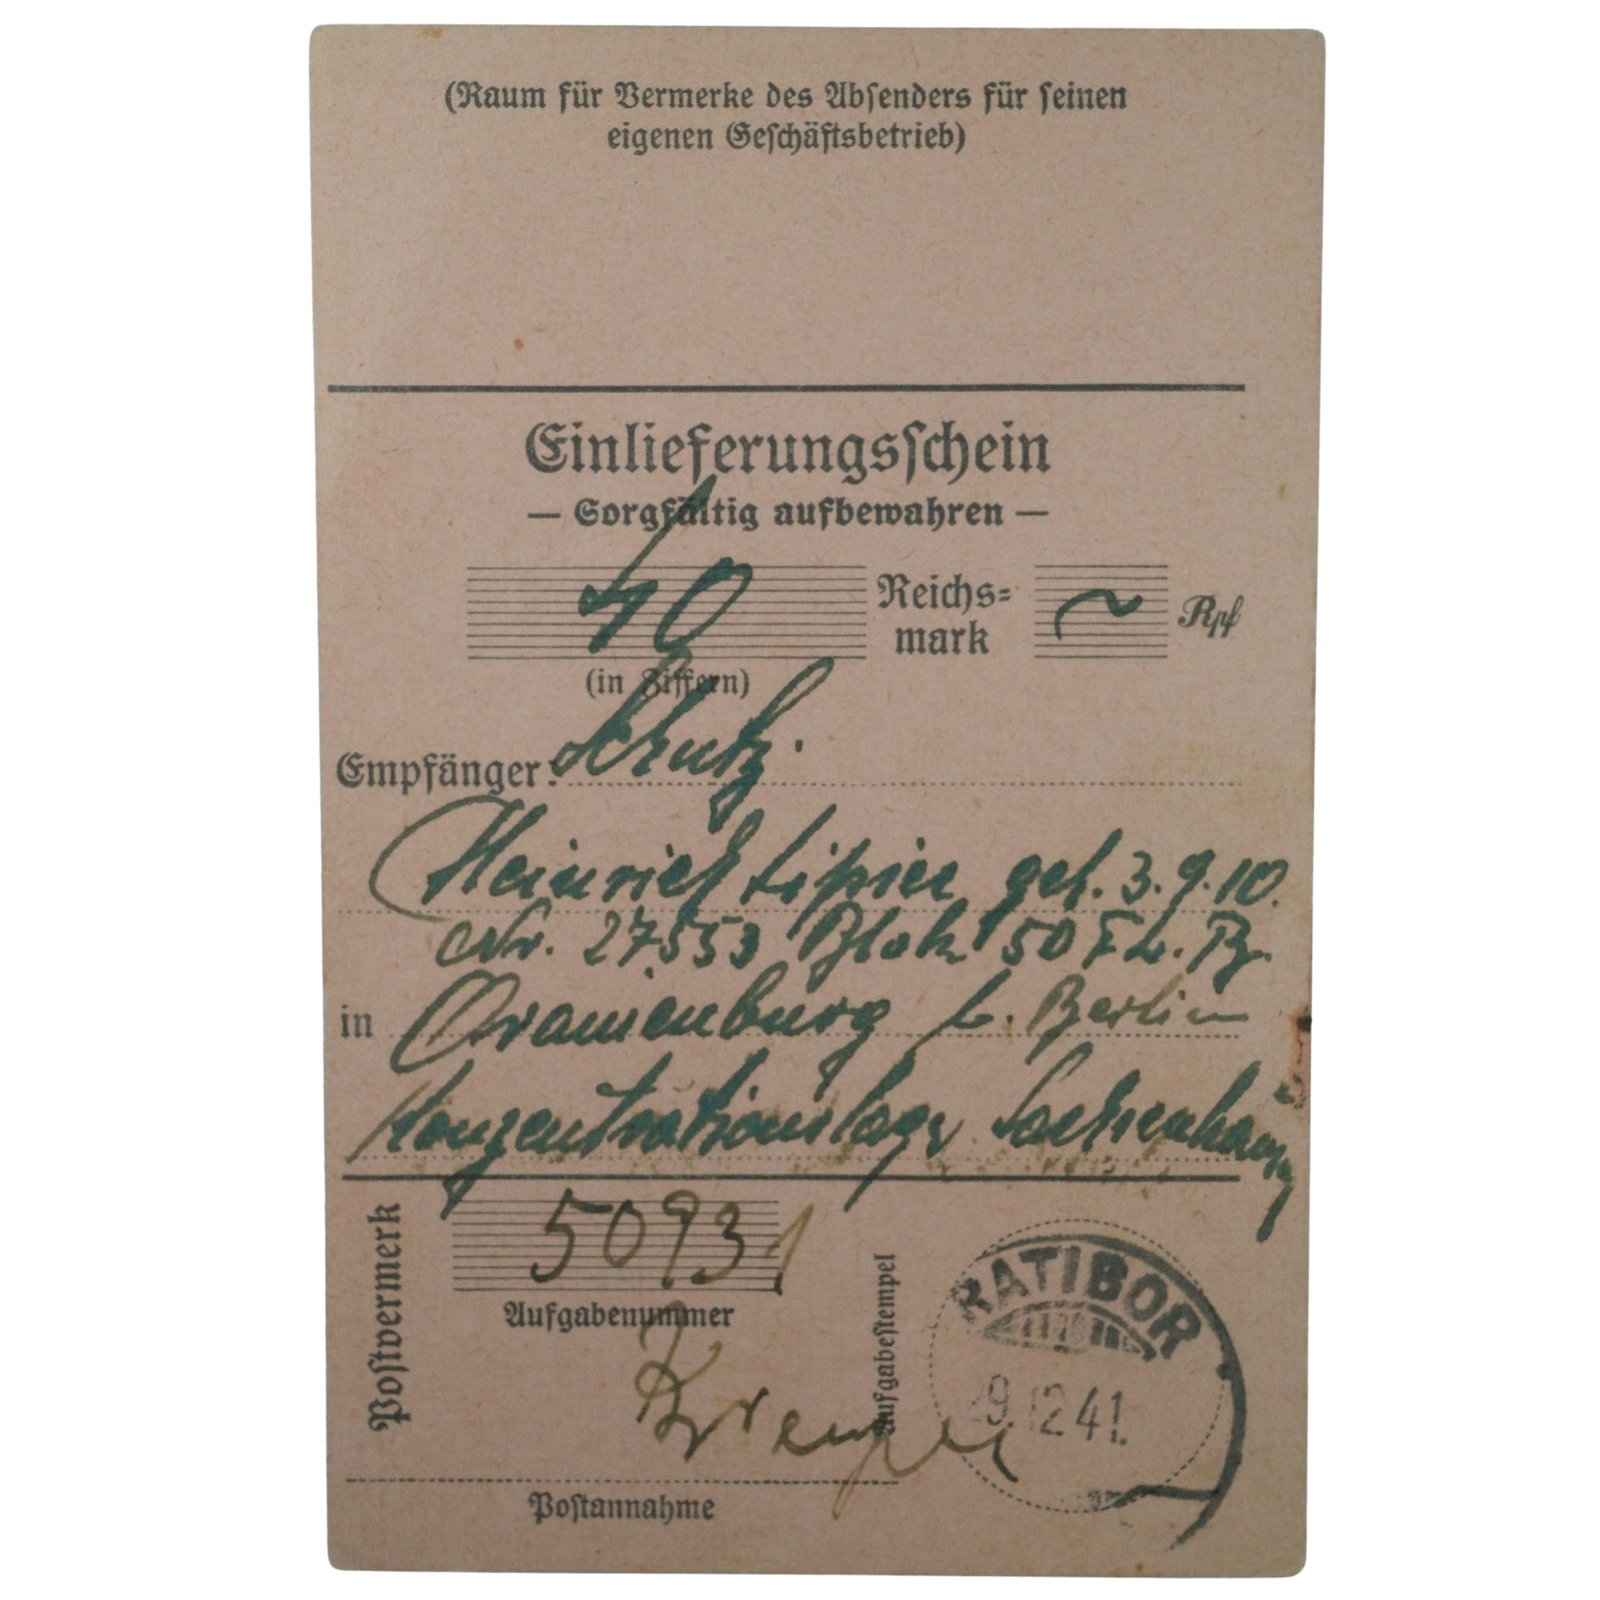 (Raum für Vermerke des Absenders für seinen
eigenen Geschäftsbetrieb)
Einlieferungsschein
— Sorgfältig aufbewahren —
40 Reichs=
mark ~ Rpf
(in Ziffern)
Empfänger: Schutz.
Heinrich Lipiec geb. 3.9.10.
Nr. 27553 Block 50
in Oranienburg b. Berlin
Konzentrationslager Sachsenhausen
Postvermerk
50931
Aufgabenummer
Aufgabestempel
RATIBOR
9.12.41.
Postannahme